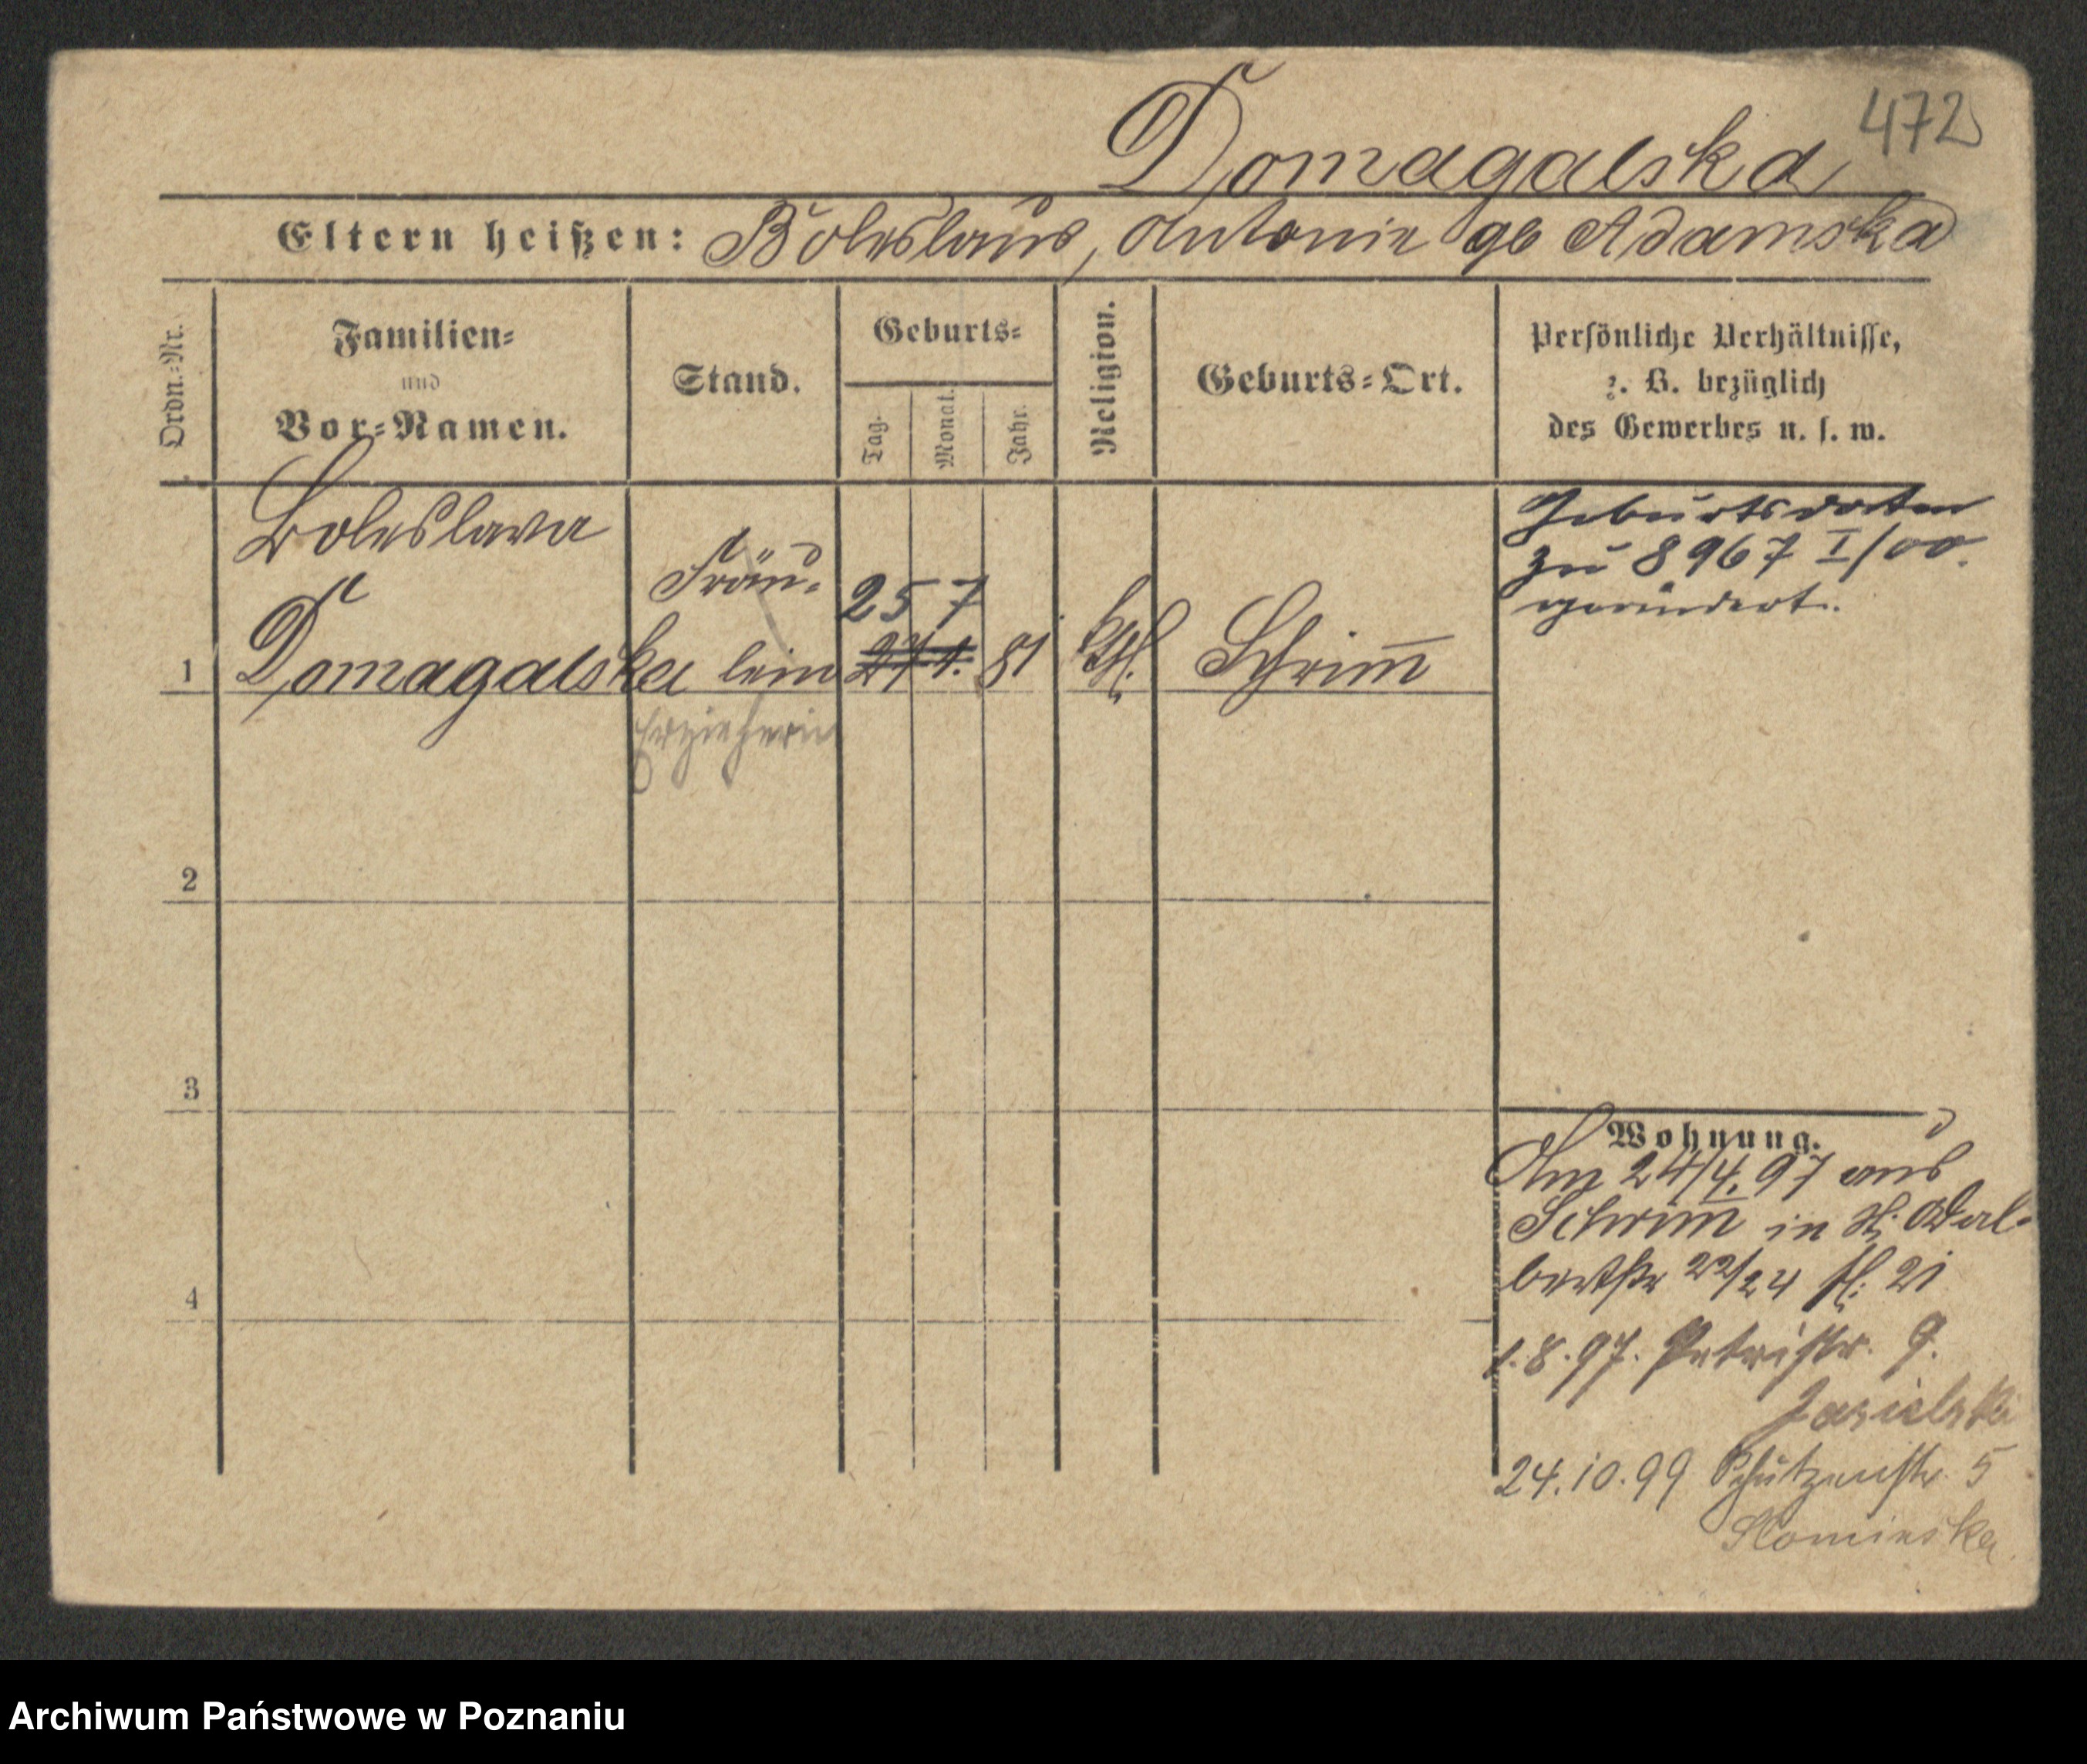 472
Domagalska
Eltern heißen: Boleslaus, Antonie gb Adamska
Ordn.=Nr.
Familien=
und
Vor=Namen.
Stand.
Geburts=
Tag.
Monat.
Jahr.
Religion.
Geburts=Ort.
Persönliche Verhältnisse,
z. B. bezüglich
des Gewerbes u. s. w.
Boleslava
Fräu-
25 7
1 Domagalska lein 27 1. 81 kth. Schrim̅
Erzieherin
Geburtsdaten
zu 8967 I/00.
geändert.
2
3
4
Wohnung.
Am 24/4. 97 aus
Schrim̅ in St. Adal-
bertstr 22/24 H. 21
1.8.97. Petristr. 9.
Jasielski
24.10.99 Schützenstr. 5
Slominska
Archiwum Państwowe w Poznaniu